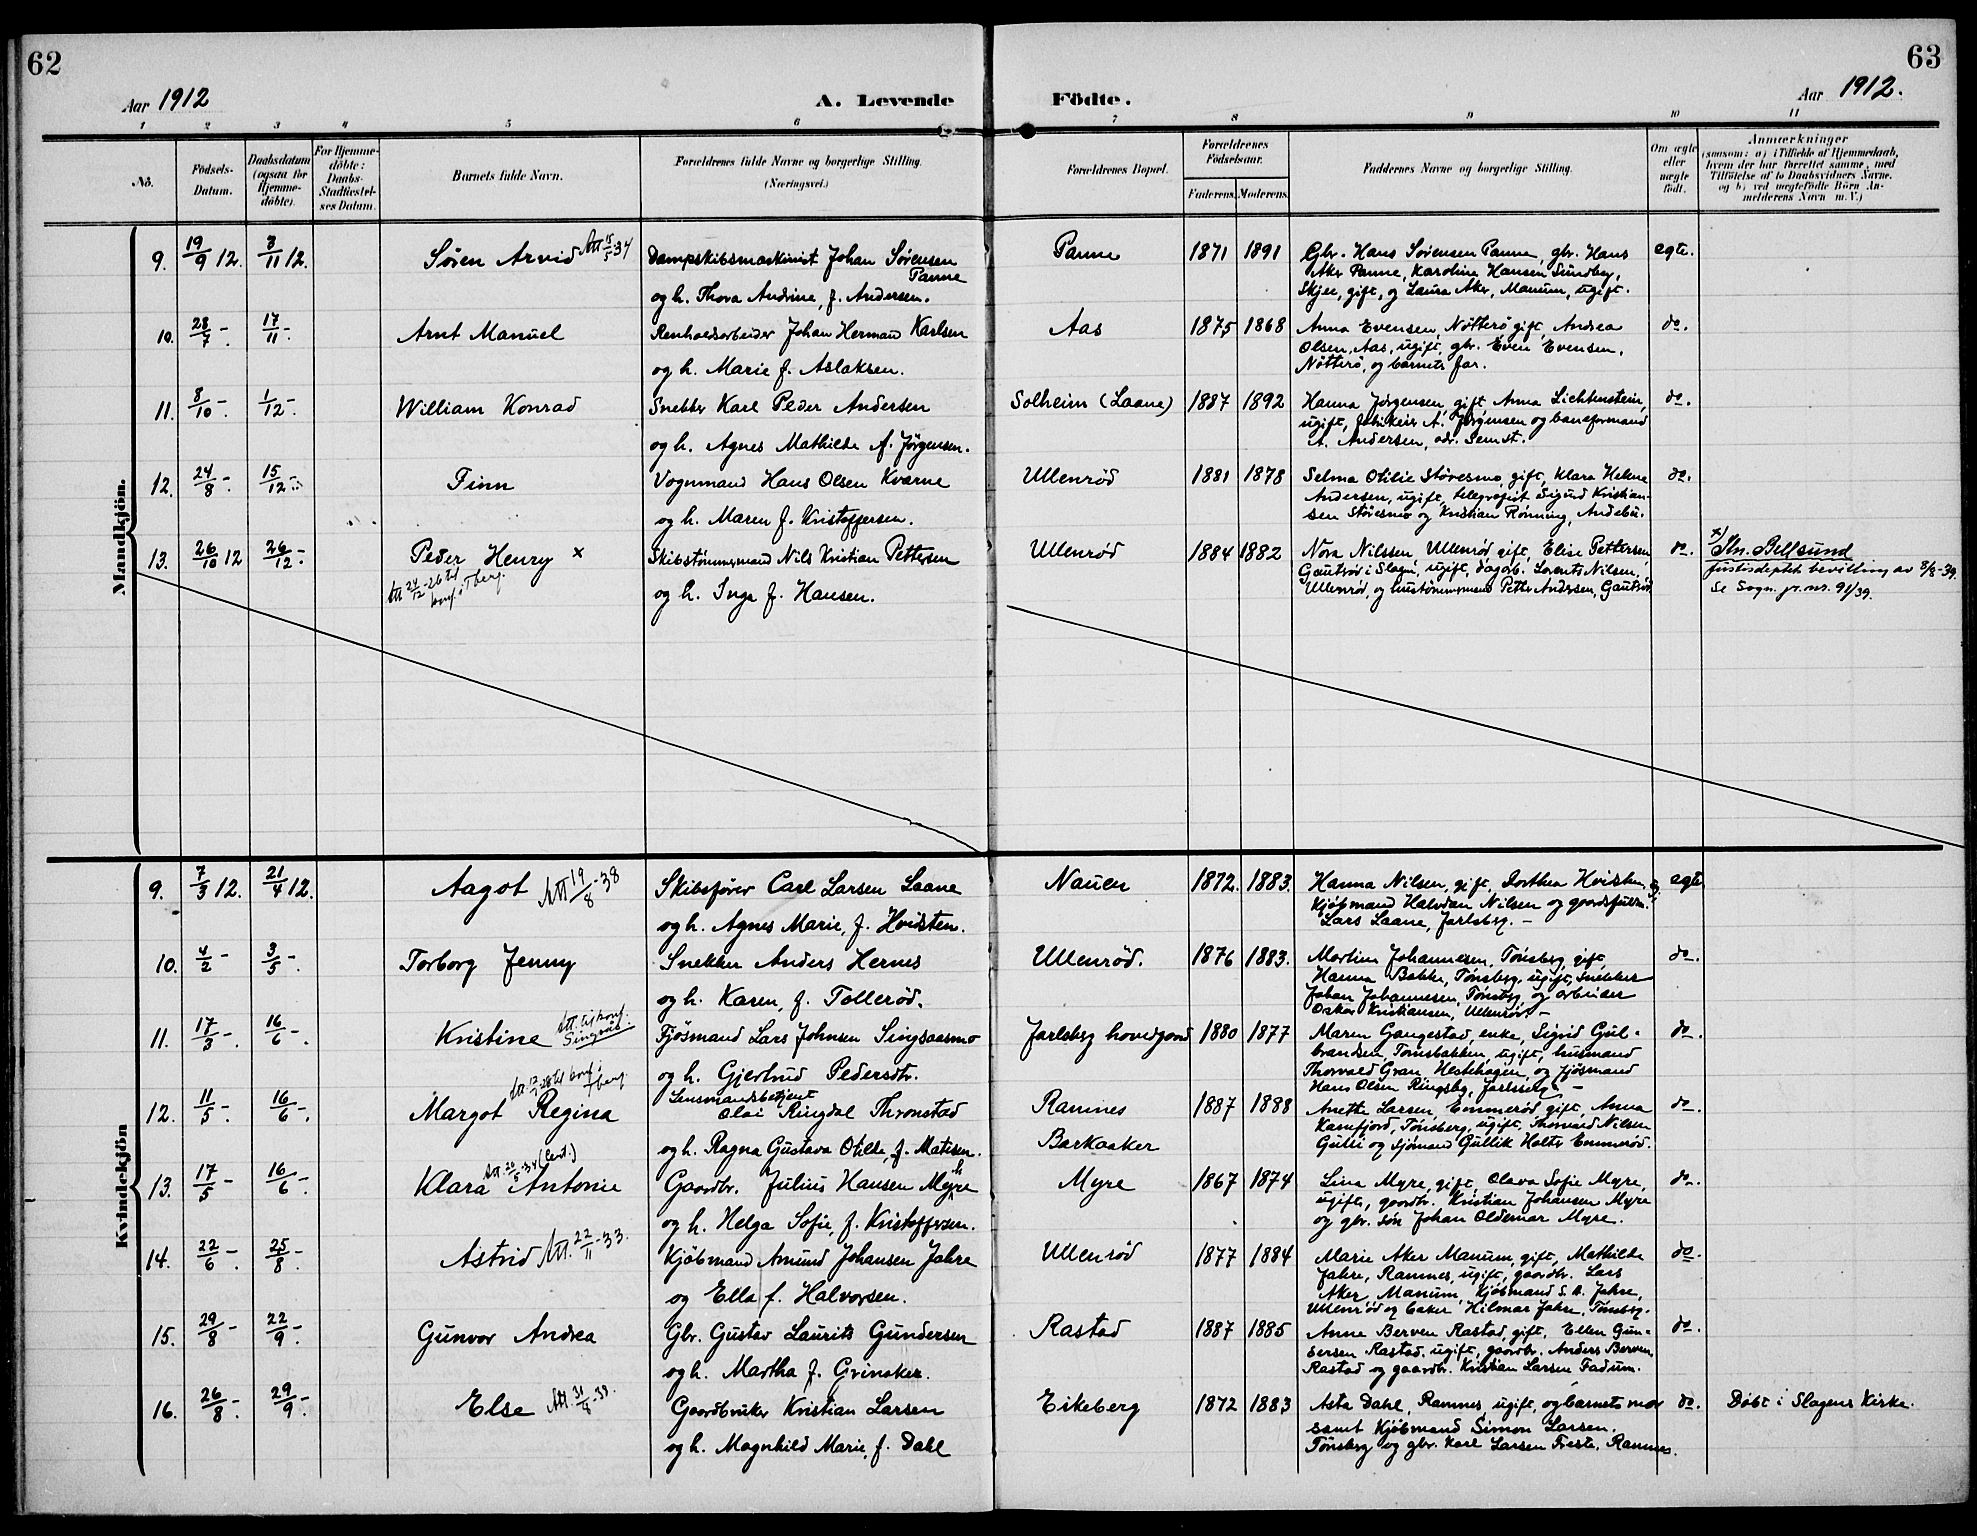 62
63
Aar 1912
A. Levende Födte.
Aar 1912.
1 2 3 4 5 6 7 8 9 10 11
No.
Födsels-
Datum.
Daabsdatum
(ogsaa for
Hjemme-
döbte)
For Hjemme-
döbte:
Daabs-
Stadfæstel-
ses Datum.
Barnets fulde Navn.
Forældrenes fulde Navne og borgerlige Stilling.
(Næringsvei.)
Forældrenes Bopæl.
Forældrenes
Födselsaar.
Faderens. Moderens.
Faddernes Navne og borgerlige Stilling.
Om ægte
eller
uægte
født.
Anmærkninger
(saasom: a) i Tilfælde af Hjemmedaab,
hvem der har forrettet samme, med
Tilföielse af to Daabsvidners Navne.
og b) ved uægtefödte Börn An-
melderens Navn m. V.)
Mandkjön.
9. 19/9 12. 3/11 12. Søren Arvid Att 15/5-34 Dampskibsmaskinist Johan Sørensen
Panne
og h. Thora Andrine, f. Andersen.
Panne 1871 1891 Gbr. Hans Sørensen Panne, gbr. Hans
Aker Panne, Karoline Hansen Sundby,
Skjee, gift, og Laura Aker, Manum, ugift.
egte.
10. 28/7 - 17/11 - Arnt Manuel Renholdsarbeider Johan Herman Karlsen
og h. Marie f. Aslaksen.
Aas 1875 1868 Anna Evensen, Nötterö gift, Andrea
Olsen, Aas, ugift, gbr. Even Evensen,
Nötterö, og barnets far.
do.
11. 8/10 - 1/12 - William Konrad Snekker Karl Peder Andersen
og h. Agnes Mathilde f. Jørgensen.
Solheim (Laane) 1887 1892 Hanna Jørgensen, gift Anna Lichtenstein,
ugift, A. Jørgensen og baneformand
A. Andersen, adr. Sem st.
do.
12. 24/8 - 15/12 - Finn Vognmand Hans Olsen Kvarne
og h. Maren f. Kristoffersen.
Ullenrød 1881 1878 Selma Otilie Støvesmo, gift, Klara Helene
Andersen, ugift, telegrafist Sigurd Kristian-
sen Støvesmo og Kristian Rönning, Andebu.
do.
13. 26/10 12 26/12 - Peder Henry x
Att 24/12-26 til
konf. i Tberg.
Skibstømmermand Nils Kristian Pettersen
og h. Inga f. Hansen.
Ullenrød 1884 1882 Nora Nilssen Ullenrød gift, Elise Pettersen,
Gautsrø i Slagn, ugift, dagarb. Lorents Nilsen,
Ullenrød, og hustømmermand Petter Andersen, Gautsrø
do.
x) Stn. Bellsund
Justisdeptet bevilling av 8/8-39.
Se Sogn. jr. nr. 91/39.
Kvindekjön
9. 7/3 12. 21/4 12. Aagot Att 19/8-38 Skibsfører Carl Larsen Laane
og h. Agnes Marie, f. Hvidsten.
Nauen 1872. 1883. Hanna Nilsen, gift, Dorthea Hvidsten, ug.
Kjøbmand Halvdan Nilsen og gaardsfuldm.
Lars Laane, Jarlsberg. -
egte
10. 4/2 - 3/5 - Torborg Jenny Snekker Anders Hernes
og h. Karen, f. Tollerød.
Ullenrød. 1876 1883. Martine Johannesen, Tønsberg, gift,
Hanna Bakke, Tønsberg, ugift, snekker
Johan Johannesen, Tønsbg, og arbeider
Oskar Kristiansen, Ullenrød. -
do.
11. 17/3 - 16/6 - Kristine Att. til konf.
Singsås
Fjøsmand Lars Johnsen Singsaasmo
og h. Gjertrud Pedersdtr.
Jarlsberg hovedgaard 1880 1877 Maren Gangestad, enke, Sigrid Gul-
brandsen, Tomsbakken, ugift, husmand
Thorvald Gran Hestehagen, og fjøsmand
Hans Olsen Ringsby, Jarlsberg -
do.
12. 11/5 - 16/6 - Margot Regina
Lensmandsbetjent
Olai Ringdal Thronstad
og h. Ragna Gustava Otilde, f. Matisen.
Ramnes
Barkaaker
1887 1888 Anette Larsen, Emmerød, gift, Anna
Kamfjord, Tønsberg, ugift, Thorvald Nilsen
Gulli og sjömand Gullik Holts Emmerød.
do.
13. 17/5 - 16/6 - Klara Antonie Gaardbr. Julius Hansen Myhre
og h. Helga Sofie, f. Kristoffersen.
Myre 1867 1874 Lina Myre gift, Olava Sofie Myre,
ugift, gaardbr. Kristian Johansen Myre
og gbr. søn Johan Oldemar Myre.
do.
14. 22/6 - 25/8 - Astrid Att. 22/11-33. Kjøbmand Amund Johansen Jahre
og Ella f. Halvorsen.
Ullenrød 1877 1884 Marie Aker Manum, gift, Mathilde
Jahre, Ramnes, ugift, gaardbr. Lars
Aker, Manum, Kjøbmand S. A. Jahre,
Ullenrød og baker Hilmar Jahre, Tønsberg.
do.
15. 29/8 - 22/9 - Gunvor Andrea Gbr. Gustav Laurits Gundersen
og h. Martha f. Grinaker.
Rastad 1887 1885 Anne Berven Rastad, gift, Ellen Gun-
dersen Rastad, ugift, gaardbr. Anders Berven,
Rastad og gaardbr. Kristian Larsen Fadum.
do.
16. 26/8 - 29/9 - Else Gaardbruker Kristian Larsen
og h. Magnhild Marie, f. Dahl
Eikeberg 1872 1883 Asta Dahl, Ramnes ugift, og barnets mor
samt Kjøbmand Simon Larsen,
Tønsberg og gbr. Karl Larsen Freste, Ramnes.
do. Døbt i Slagens Kirke.